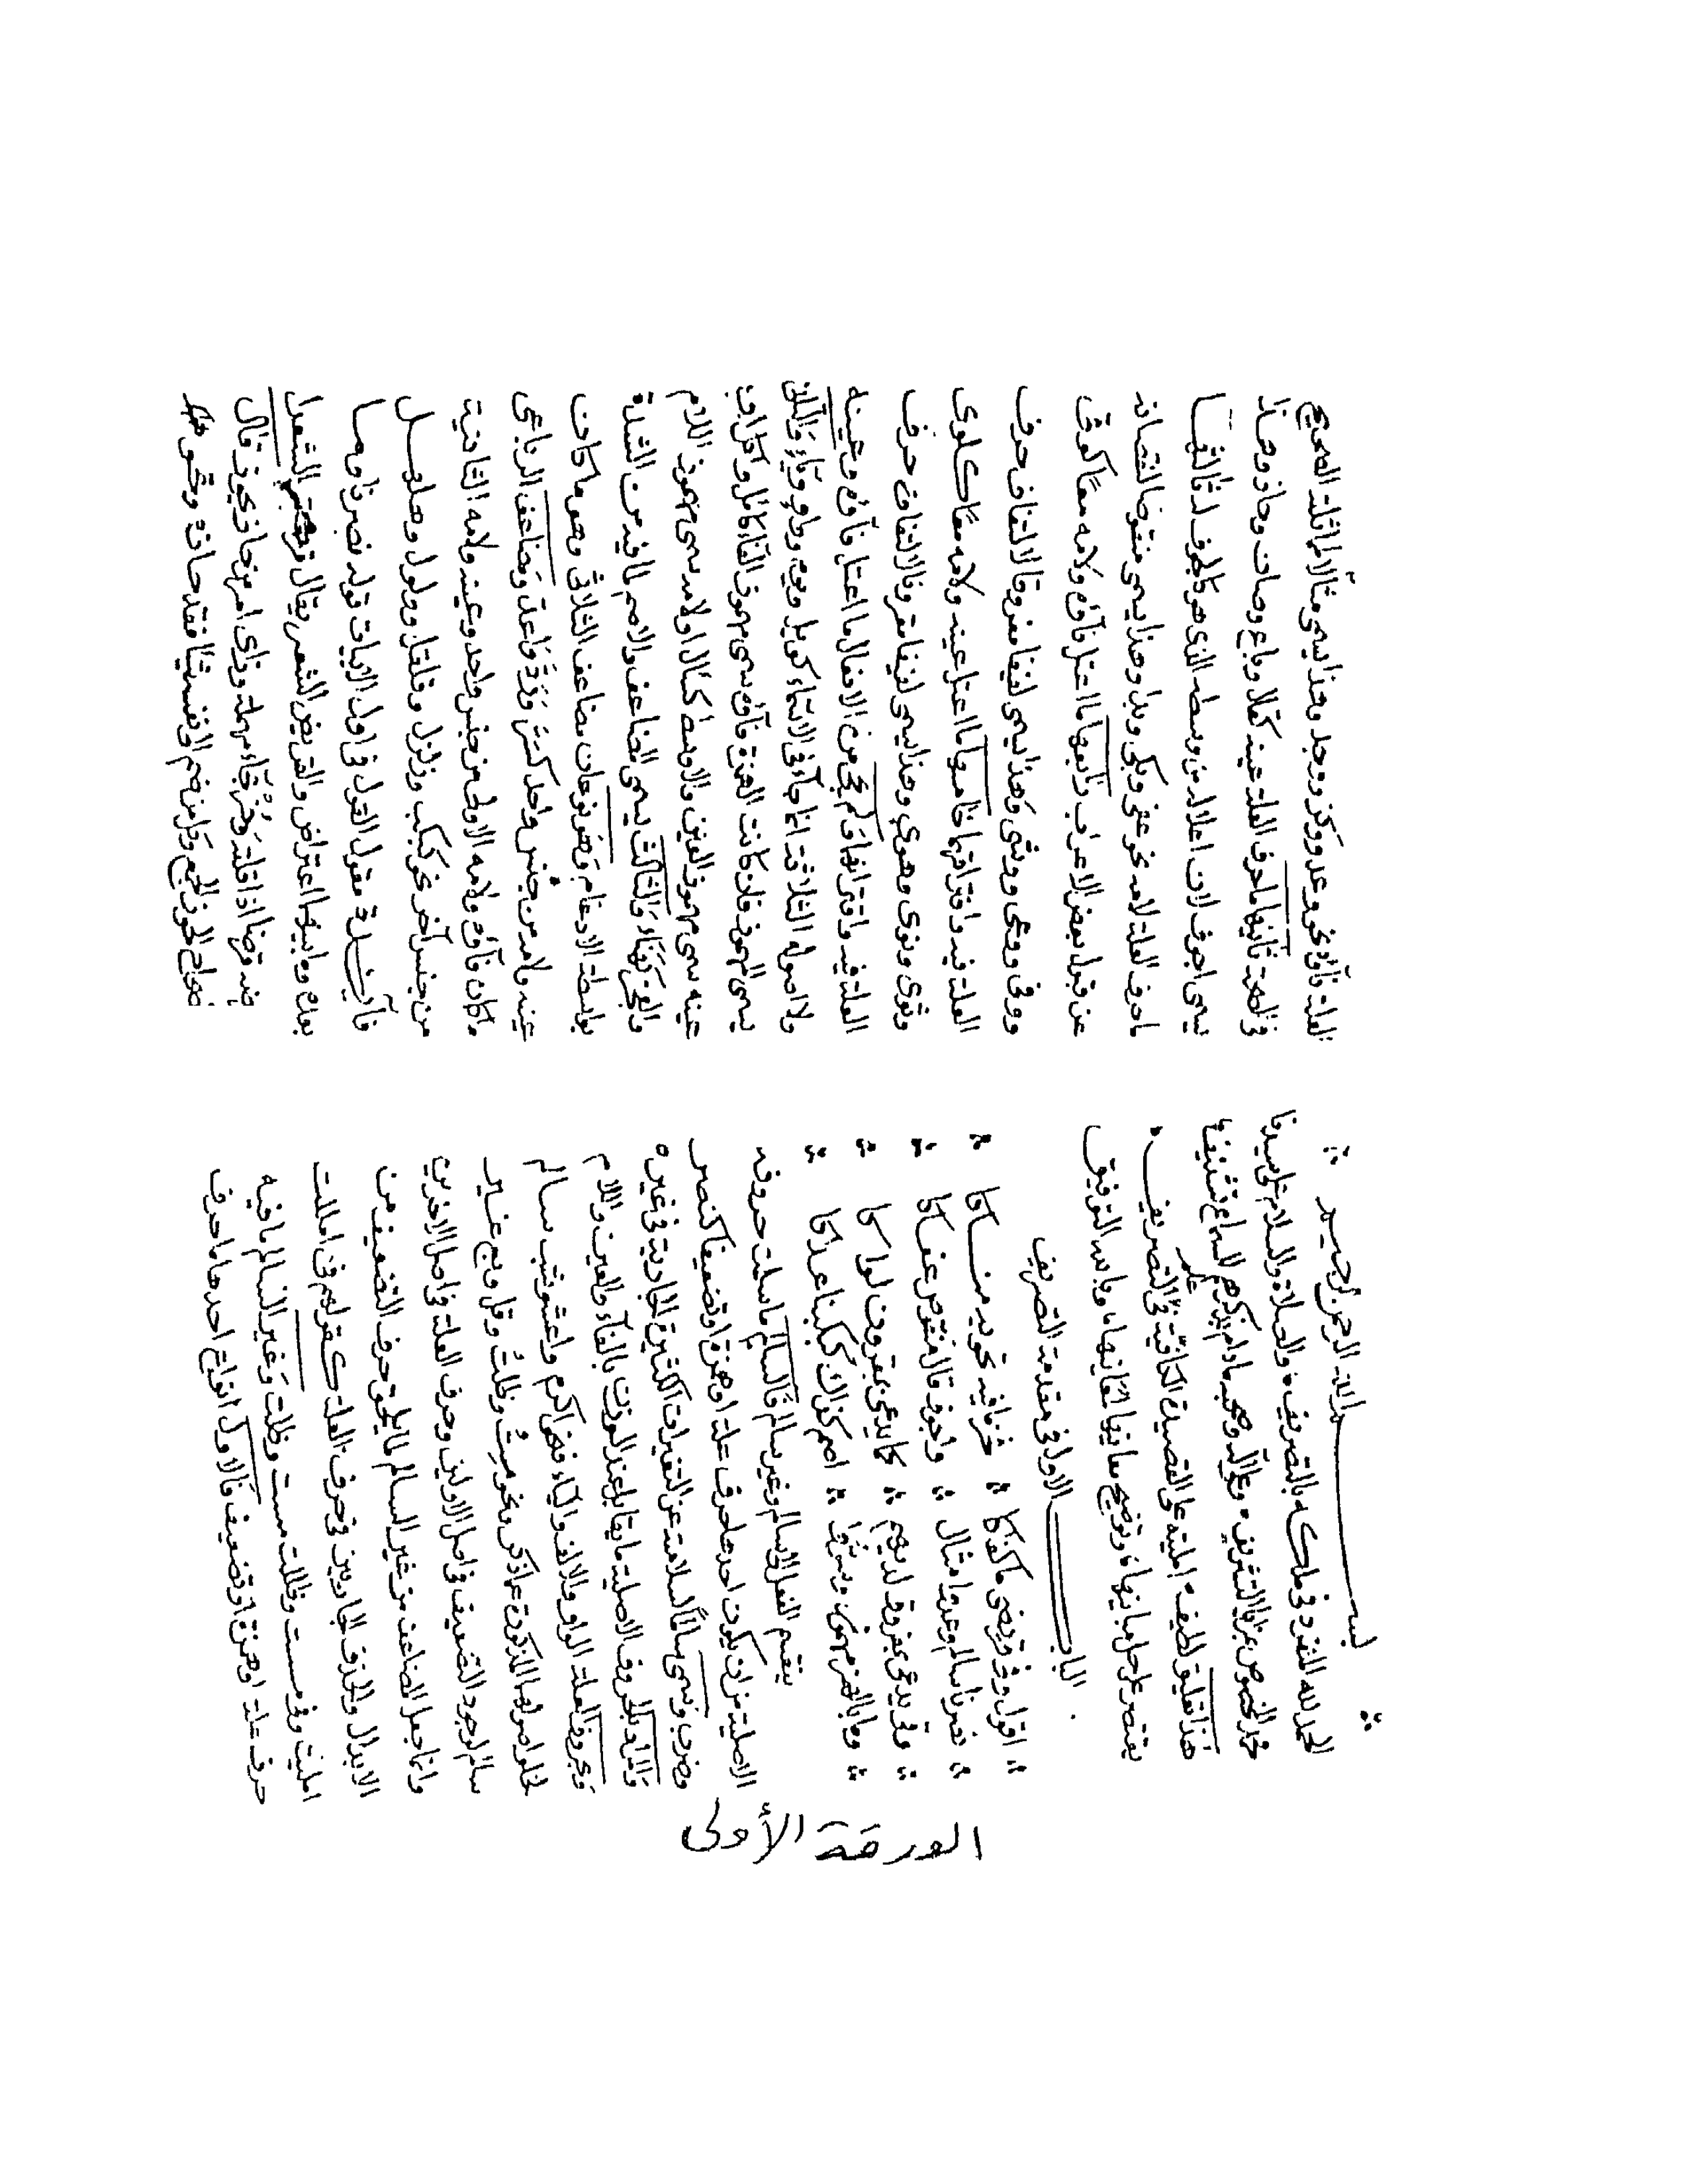 بسم الله الرحمن الرحيم
الحمد لله المنفرد في ملكه بالتصريف والصلاة والسلام على سيدنا
محمد المخصوص بمزايا التشريف وعلى آله وصحبه
هذا تعليق لطيف امليته على القصيدة الكافية في علم التصريف
يقتصر على حل مبانيها وتوضيح معانيها وبالله التوفيق
الباب الاول في مقدمة التصريف
اقول وفي قريضي ما كفاكا خذ ما فيه تحويه
نصرنا سالم وعدوا مثال واجوف قال منقوص عفاكا
وقى يدعى بمفروق لديهم كما يدعى بمقرون لواكا
وما بالهمز مهموز
ينقسم الفعل الى سالم وغير سالم فالسالم ما سلمت حروفه
الاصلية من ان يكون احدها حرف علة او همزة او تضعيفا كنصر
وضرب وسمى سالما لسلامته عن التغيرات الكثيرة الجارية في غيره
والمراد بالحروف الاصلية ما يقابل عند الوزن بالفاء والعين واللام
وبحروف العلة الواو والالف والياء فنحو اكرم واعشوشب سالم
لخلو اصولها المذكورة عما ذكر ونحو مست وظلت وقل وبع غير
سالم لوجود التضعيف في اصل الاولين وحرف العلة في اصل الاخرين
وانما جعل المضاعف من غير السالم لما يلحق حرف التضعيف من
الابدال والحذف الجاريين في حرف العلة كقولهم في امللت
امليت وفي مسست وظللت مست وظلت وغير السالم ما فيه
حرف علة او همزة او تضعيف فالاول انواع احدها ما حرف
العلة فاؤه نحو وعد ووكز ووجد وهذا يسمى مثالا لمماثلته الصحيح
في الصحة ثانيها ما حرف العلة عينه كقال وباع وصان وهذا
يسمى اجوف لان اعلاله من وسطه الذي هو كالجوف له ثالثها
ما حرف العلة لامه نحو عفى وبكى وهذا يسمى منقوصا لنقصانه
عن قبول بعض الاعراب رابعها ما اعتل فاؤه ولامه معا كوقى
ووفى ووعى ووشى وهذا يسمى لفيفا مفروقا لالتفاف حرف
العلة فيه وافتراقهما خامسها ما اعتل عينه ولامه معا كلوى
وثوى ونوى وهوى وهذا يسمى لفيفا مقرونا لالتفاف حرف
العلة فيه واقترانهما ولم يجئ من الافعال ما اعتل فاؤه وعينه
ولا اصوله الثلاثة انما جاء في الاسماء كويل ويوم وواو وياء والثاني
يسمى المهموز فان كانت الهمزة فاؤه يسمى مهموز الفاء كاكل وان كانت
عينه سمى مهموز العين والاوسط كسال او لامه يسمى مهموز اللام
والعجز كهناء والثالث يسمى المضاعف والاصم لما فيه من الشدة
بواسطة الادغام وهو نوعان مضاعف الثلاثي وهو ما كانت
عينه ولامه من جنس واحد كمس ومد واعد ومضاعف الرباعي
ما كان فاؤه ولامه الاولى من جنس واحد وعينه ولامه الثانية
من جنس آخر نحو كبكب وزلزل وقلقل وولول
فايدة مقول القول في اول الابيات قوله نصرنا وما
بعده وما بينهما اعتراض والقريض الشعر يقال قرضت الشعر
ضد قرضا اذا قلته